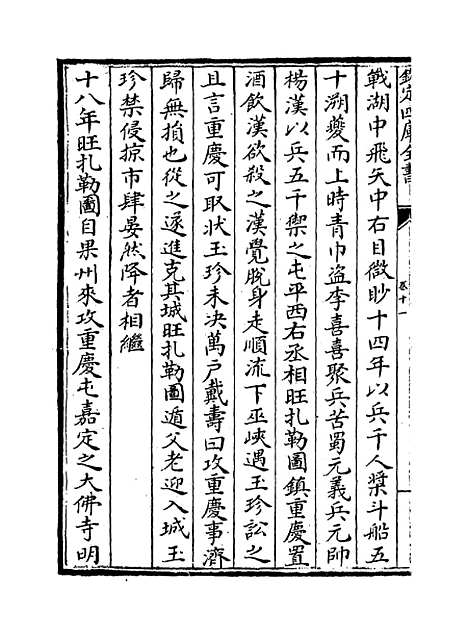 欽定四庫全書
卷十一
戰湖中飛矢中右目微眇十四年以兵千人槳斗船五
十溯夔而上時青巾盜李喜喜聚兵苦蜀元義兵元帥
楊漢以兵五千禦之屯平西右丞相旺扎勒圖鎮重慶置
酒飲漢欲殺之漢覺脫身走順流下巫峽遇玉珍訟之
且言重慶可取狀玉珍未決萬戶戴壽曰攻重慶事濟
歸無損也從之遂進克其城旺扎勒圖遁父老迎入城玉
珍禁侵掠市肆晏然降者相繼
十八年旺扎勒圖自果州來攻重慶屯嘉定之大佛寺明